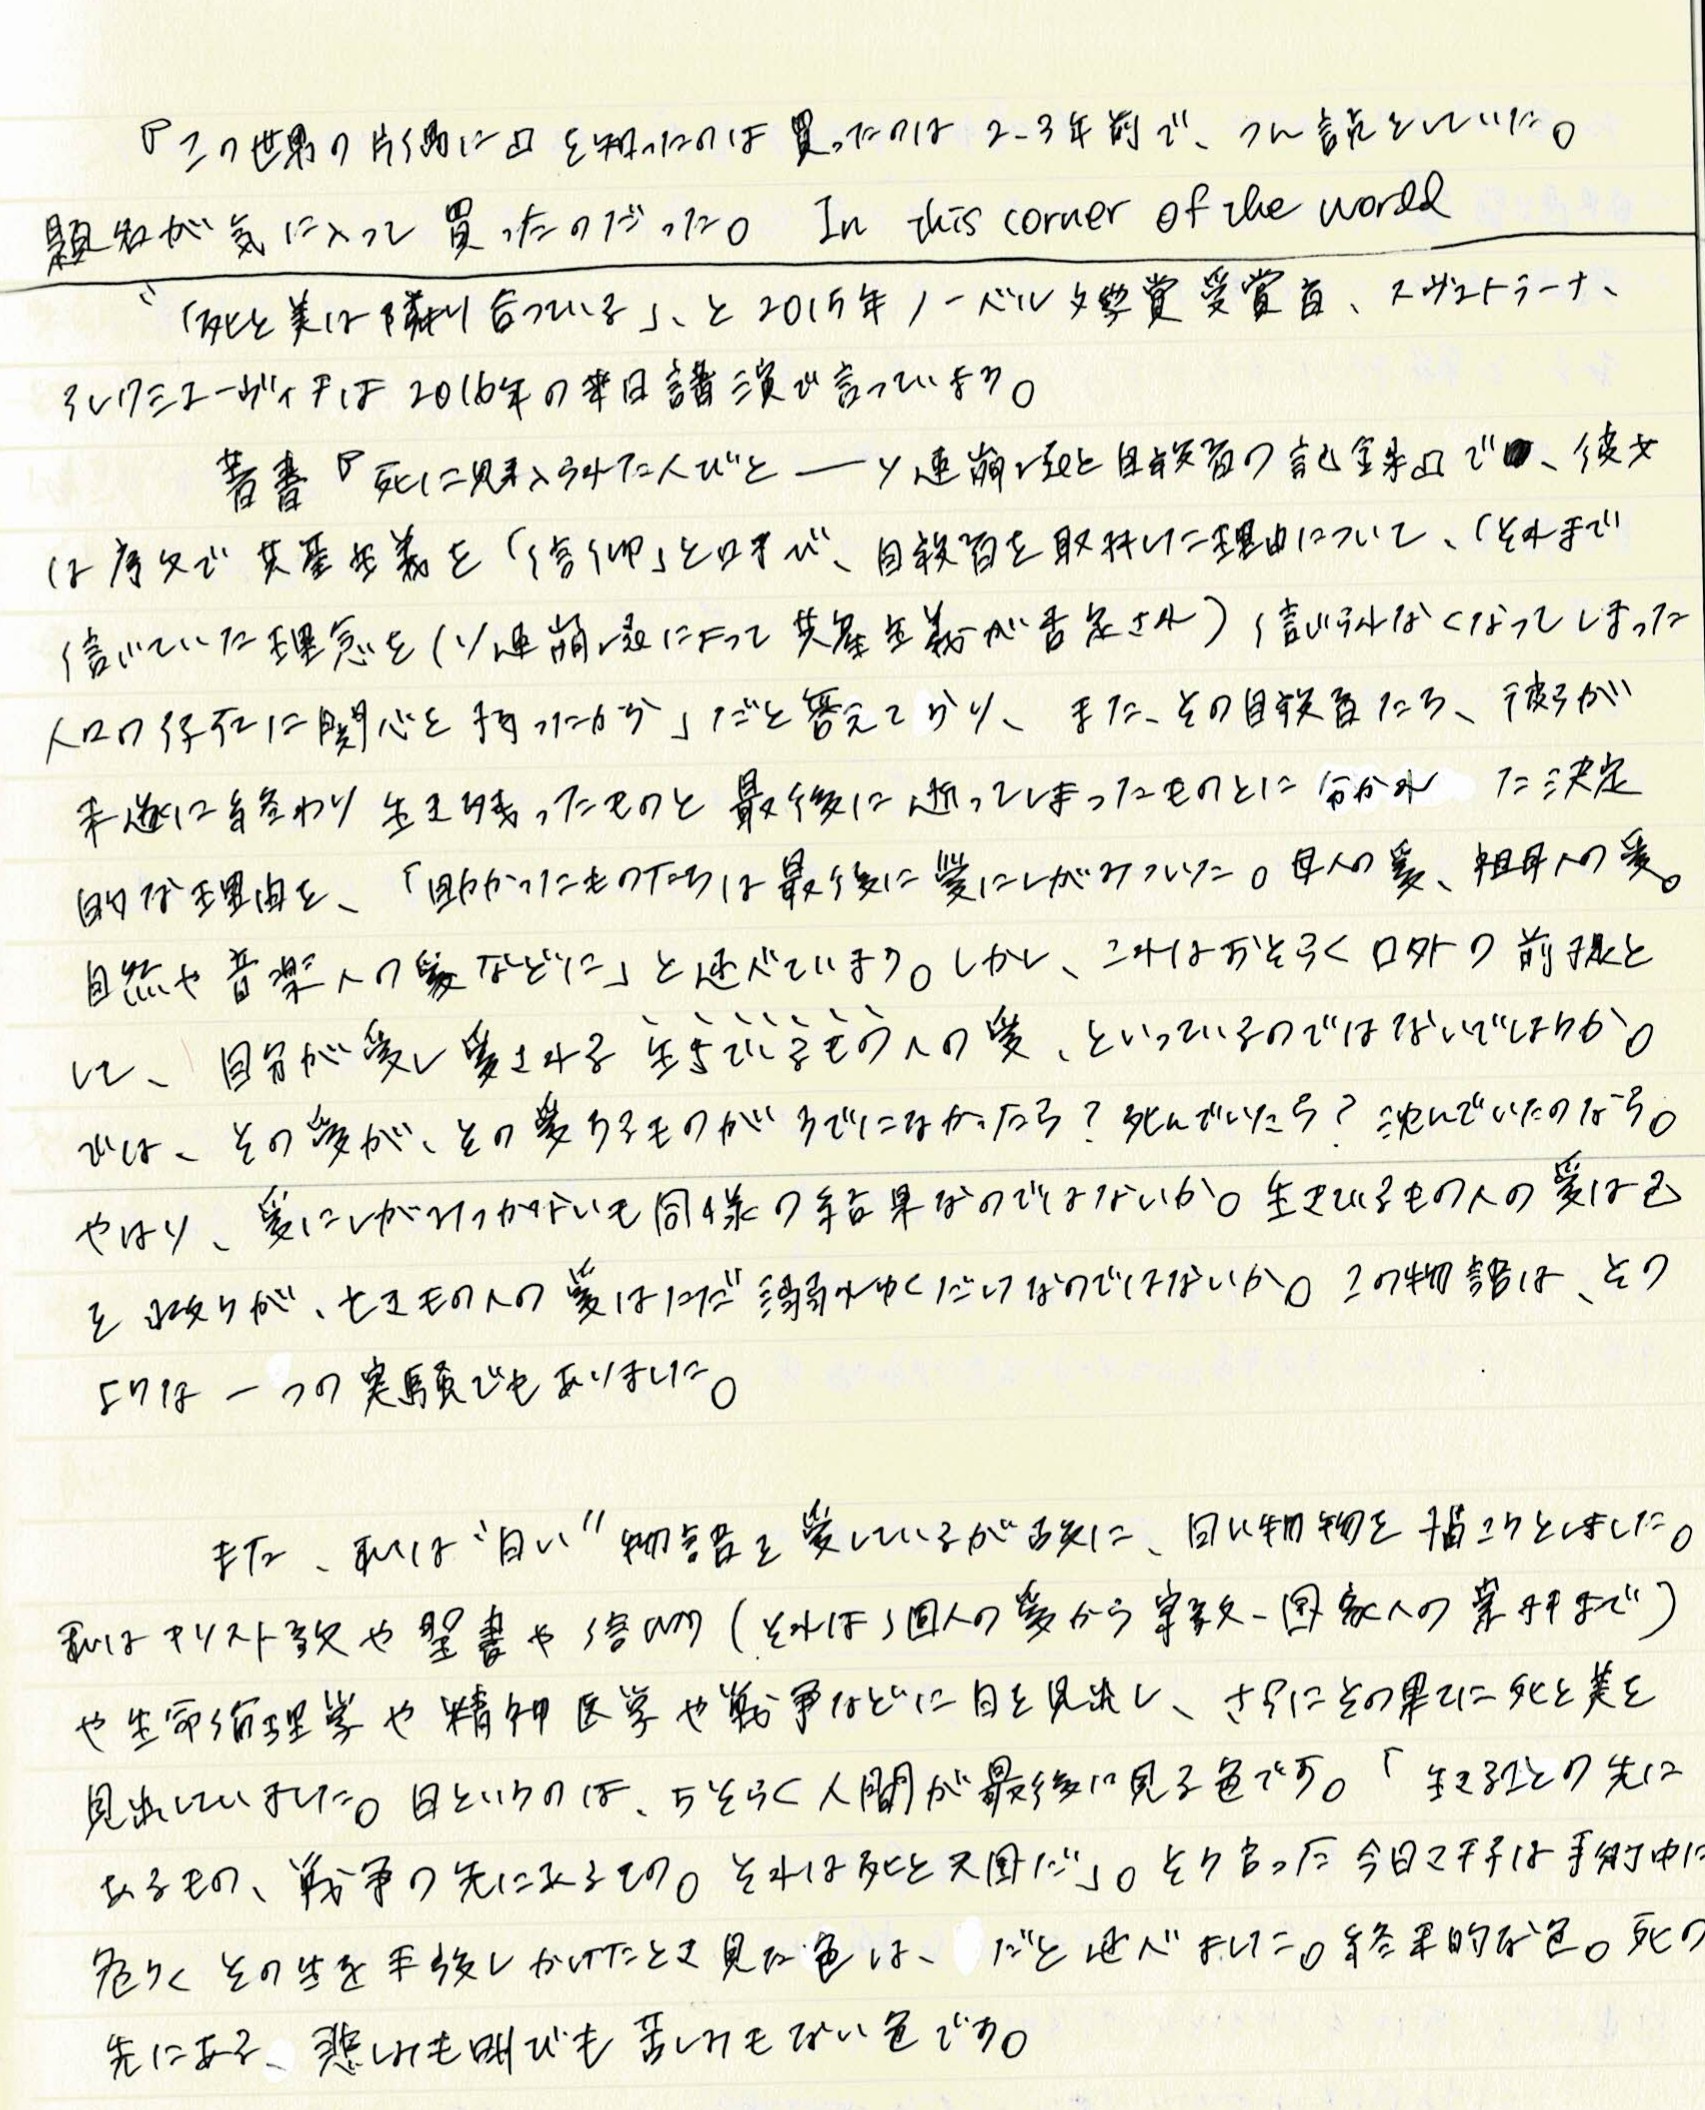 『この世界の片隅に』を知ったのは買ったのは2-3年前で、つん読をしていた。
題名が気に入って買ったのだった。 In this corner of the world
“「死と美は隣り合っている」、と2015年ノーベル文学賞受賞者、スヴェトラーナ、
アレクシエーヴィチは2016年の来日講演で言っています。
著書『死に魅入られた人びと ── ソ連崩壊と自殺者の記録』で、彼女
は序文で共産主義を「信仰」と呼び、自殺者を取材した理由について、「それまで
信じていた理念を(ソ連崩壊によって共産主義が否定され)信じられなくなってしまった
人口の存在に関心を持ったから」だと答えており、また、その自殺者たち、彼らが
未遂に終わり生き残ったものと最後に逝ってしまったものとに分かれた決定
的な理由を、「助かったものたちは最後に愛にしがみついた。母への愛、祖母への愛。
自然や音楽への愛などに」と述べています。しかし、これはおそらく口外の前提と
して、自分が愛し愛される生きているものへの愛、といっているのではないでしょうか。
では、その愛が、その愛するものがすでになかったら?死んでいたら?沈んでいたのなら。
やはり、愛にしがみつかないも同様の結果なのではないか。生きているものへの愛は己
を救うが、亡きものへの愛はただ溺れゆくだけなのではないか。この物語は、その
ような一つの実験でもありました。
また、私は“白い”物語を愛しているが故に、白い物物を描こうとしました。
私はキリスト教や聖書や信仰(それは個人の愛から宗教-国家への崇拝まで)
や生命倫理学や精神医学や戦争などに白を見出し、さらにその果てに死と美を
見出していました。白というのは、おそらく人間が最後に見る色です。「生きることの先に
あるもの、戦争の先にあるもの。それは死と天国だ」。そう言った今日マチ子は手術中に
危うくその生を手放しかけたとき見た色は、だと述べました。終末的な色。死の
先にある、悲しみも叫びも苦しみもない色です。